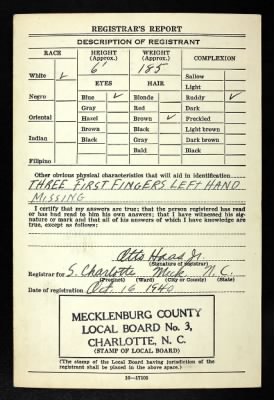 REGISTRAR'S REPORT
DESCRIPTION OF REGISTRANT
RACE HEIGHT (Approx.) WEIGHT (Approx.) COMPLEXION
6' 185
White ✓ Sallow
EYES HAIR Light
Negro Blue ✓ Blonde Ruddy ✓
Gray Red Dark
Oriental Hazel Brown ✓ Freckled
Brown Black Light brown
Indian Black Gray Dark brown
Bald Black
Filipino
Other obvious physical characteristics that will aid in identification
THREE FIRST FINGERS LEFT HAND
MISSING
I certify that my answers are true; that the person registered has read
or has had read to him his own answers; that I have witnessed his
signature or mark and that all of his answers of which I have knowledge are
true, except as follows:
Otto Haas Jr.
(Signature of registrar)
Registrar for S. Charlotte Meck N. C.
(Precinct) (Ward) (City or County) (State)
Date of registration Oct. 16 1940
MECKLENBURG COUNTY
LOCAL BOARD No. 3,
CHARLOTTE, N. C.
(STAMP OF LOCAL BOARD)
(The stamp of the Local Board having jurisdiction of the
registrant shall be placed in the above space.)
16—17105